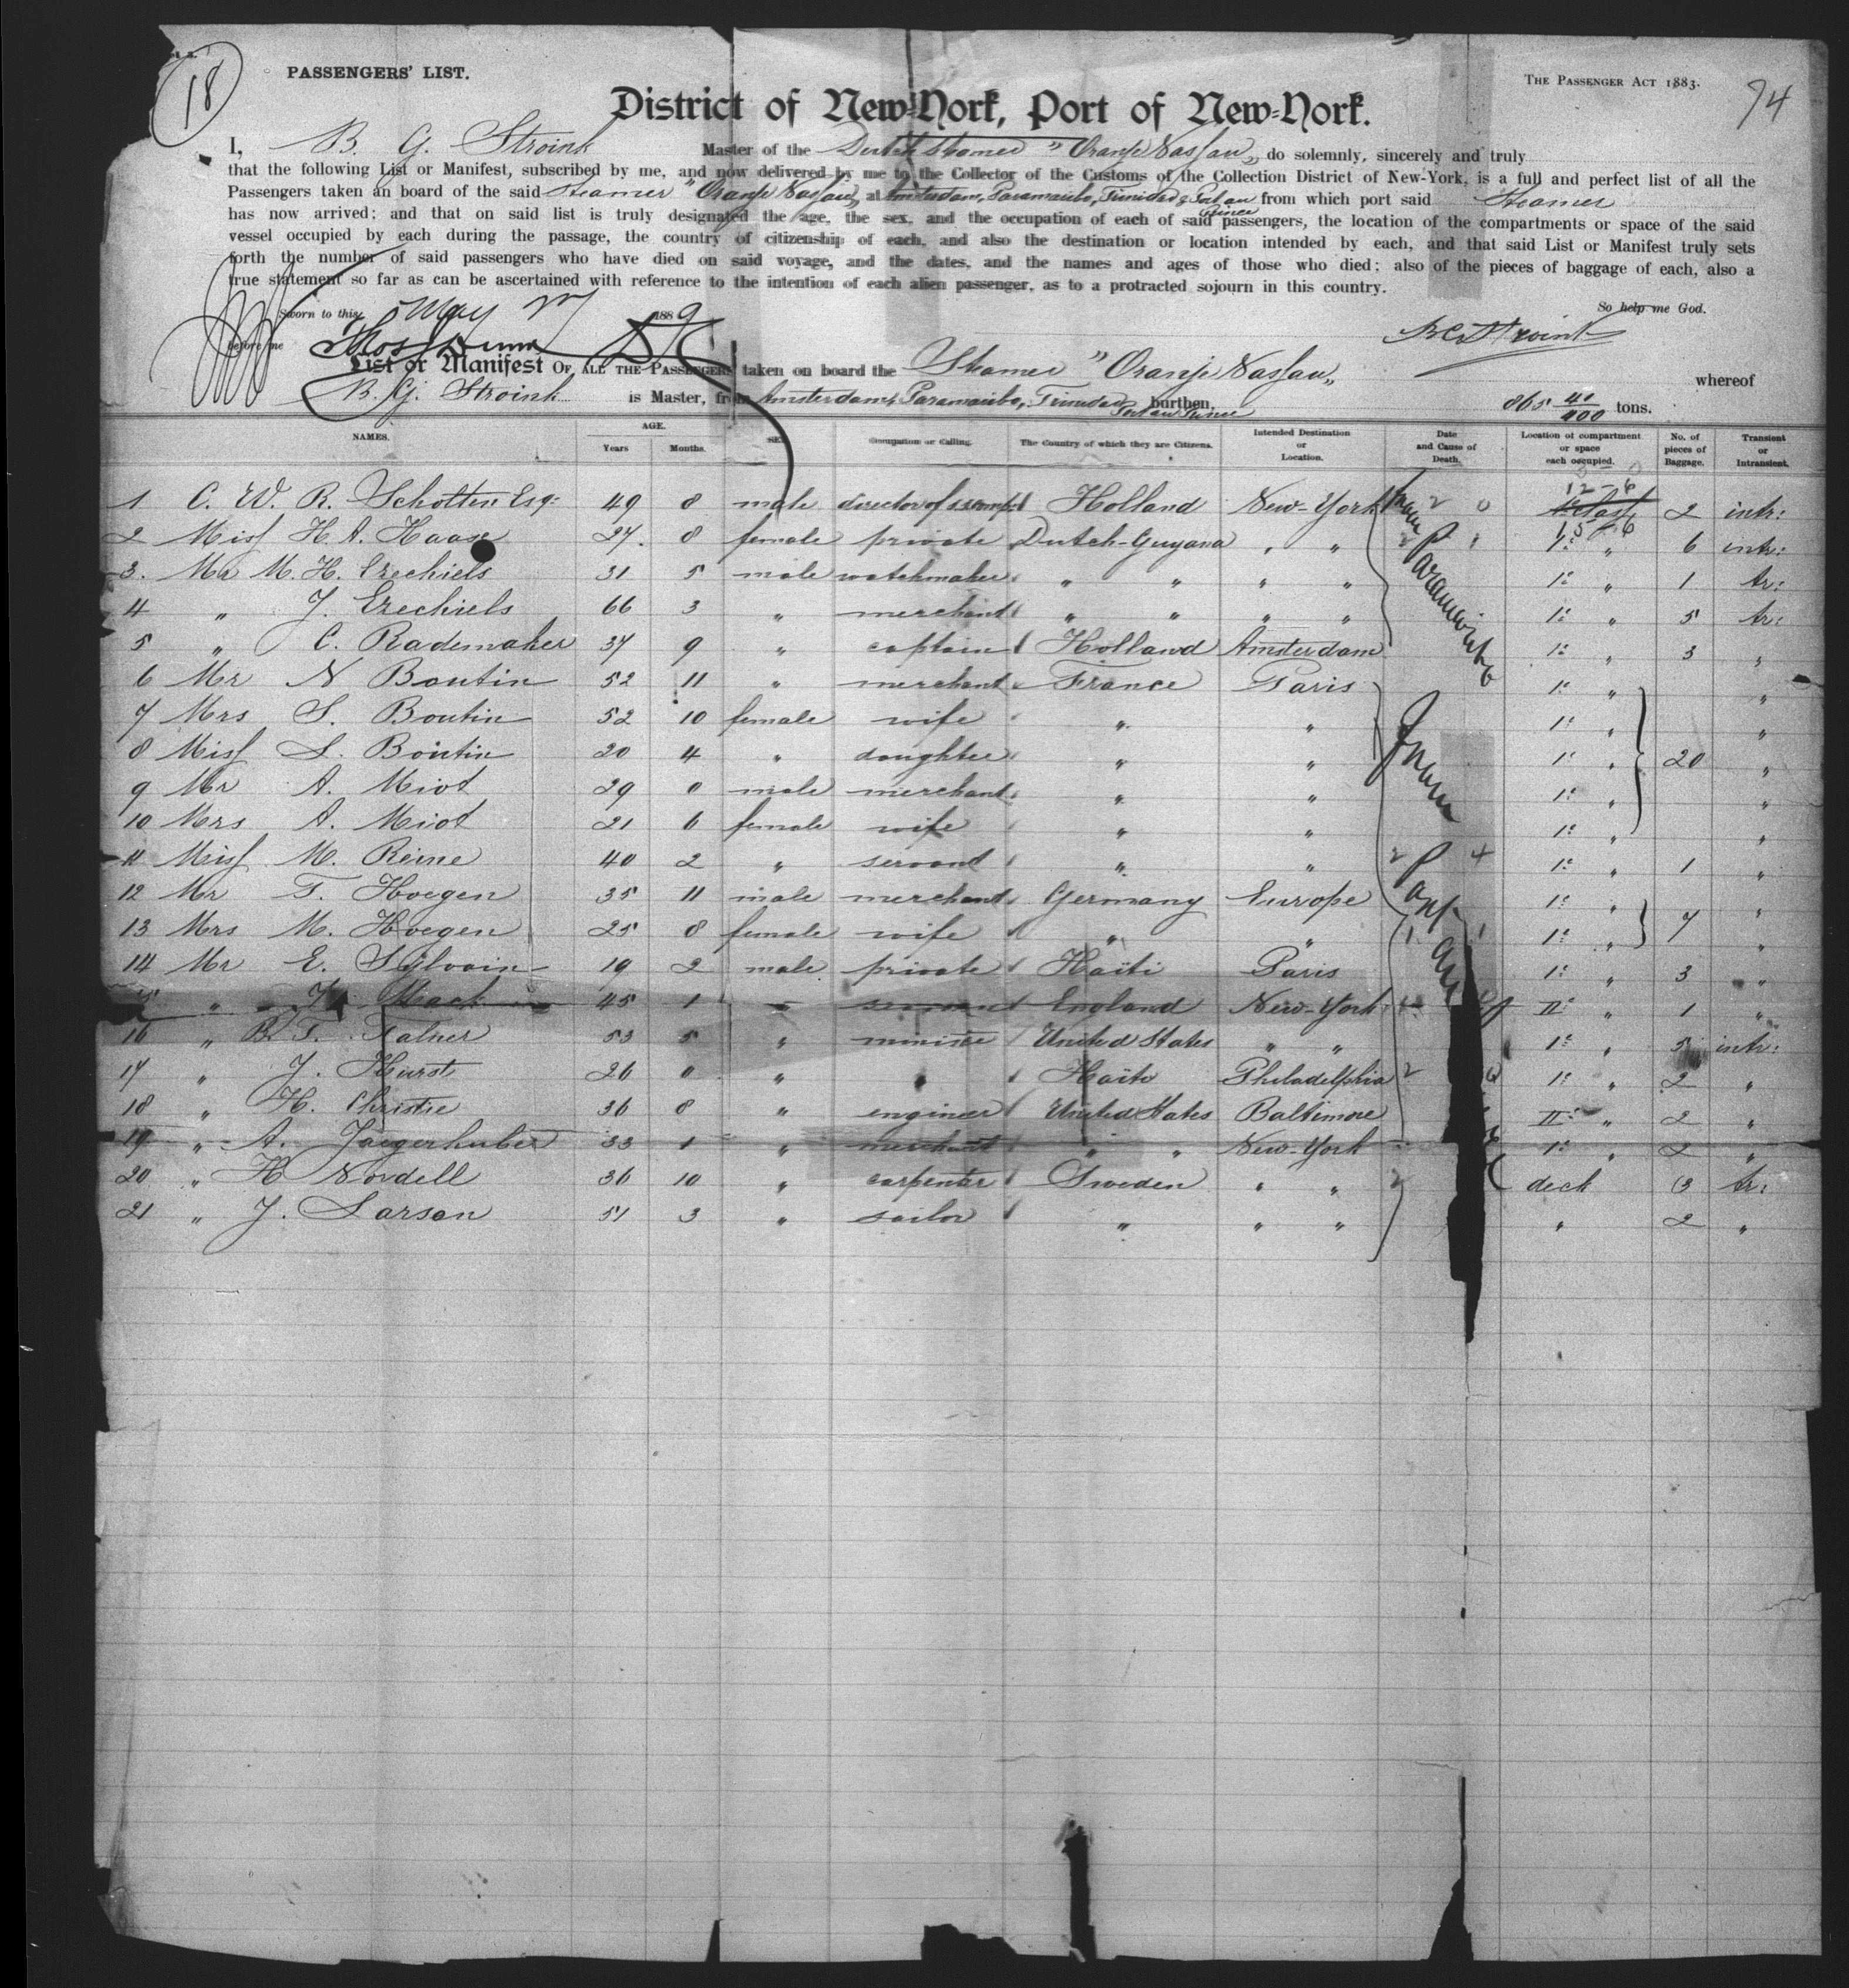 18
PASSENGERS' LIST.
THE PASSENGER ACT 1883.
94
District of New-York, Port of New-York.
I, B. G. Stroink Master of the Dutch Steamer "Oranje Nassau" do solemnly, sincerely and truly
that the following List or Manifest, subscribed by me, and now delivered by me to the Collector of the Customs of the Collection District of New-York, is a full and perfect list of all the
Passengers taken on board of the said Steamer "Oranje Nassau" at Amsterdam, Paramaribo, Trinidad & Port au Prince from which port said Steamer
has now arrived; and that on said list is truly designated the age, the sex, and the occupation of each of said passengers, the location of the compartments or space of the said
vessel occupied by each during the passage, the country of citizenship of each, and also the destination or location intended by each, and that said List or Manifest truly sets
forth the number of said passengers who have died on said voyage, and the dates, and the names and ages of those who died; also of the pieces of baggage of each, also a
true statement so far as can be ascertained with reference to the intention of each alien passenger, as to a protracted sojourn in this country.
So help me God.
Sworn to this May 1889
before me Thos Dunn
B G Stroink
List or Manifest OF ALL THE PASSENGERS taken on board the Steamer "Oranje Nassau" whereof
B. G. Stroink is Master, from Amsterdam, Paramaribo, Trinidad Port au Prince burthen, 865 41/100 tons.
NAMES. AGE. Years Months. SEX. Occupation or Calling. The Country of which they are Citizens. Intended Destination or Location. Date and Cause of Death. Location of compartment or space each occupied. No. of pieces of Baggage. Transient or Intransient.
12-6
1 C. W. R. Scholten Esq: 49 8 male director of Holland New-York 2 0 1: class 2 intr:
15-6
2 Miss H. A. Haase 27. 8 female private Dutch-Guyana " " 1: " 6 intr:
3. Mr M. H. Ezechiels 31 5 male watchmaker " " " " 1: " 1 tr:
4 " J. Ezechiels 66 3 " merchant " " " " 1: " 5 tr:
5 " C. Rademaker 37 9 " captain Holland Amsterdam 1: " 3 "
from Paramaribo
6 Mr N Boutin 52 11 " merchant France Paris 1: " "
7 Mrs S. Boutin 52 10 female wife " " 1: " "
8 Miss S. Boutin 20 4 " daughter " " 1: " 20 "
9 Mr A. Miot 29 0 male merchant " " 1: " "
10 Mrs A. Miot 21 6 female wife " " 1: " "
11 Miss M. Reine 40 2 " servant " " 2 4 1: " 1 "
12 Mr T. Hoegen 35 11 male merchant Germany Europe 1: " "
13 Mrs M. Hoegen 25 8 female wife " " 1: " 7 "
14 Mr E. Sylvain 19 2 male private Haïti Paris 1: " 3 "
from
15 " J. Mack 45 1 " England New-York II: " 1 "
16 " B. T. 53 5 " minister United States " " 1: " 5 intr:
17 " J. Hurst 26 0 " Haïti Philadelphia 2 1: " 2 "
18 " H. Christie 36 8 " engineer United States Baltimore II: " 2 "
19 " A. Jaegerhuber 33 1 " merchant " " New-York 1: " 2 "
20 " H Nordell 36 10 " carpenter Sweden " " 2 deck 3 tr:
21 " J. Larson 51 3 " sailor " " " " 2 "